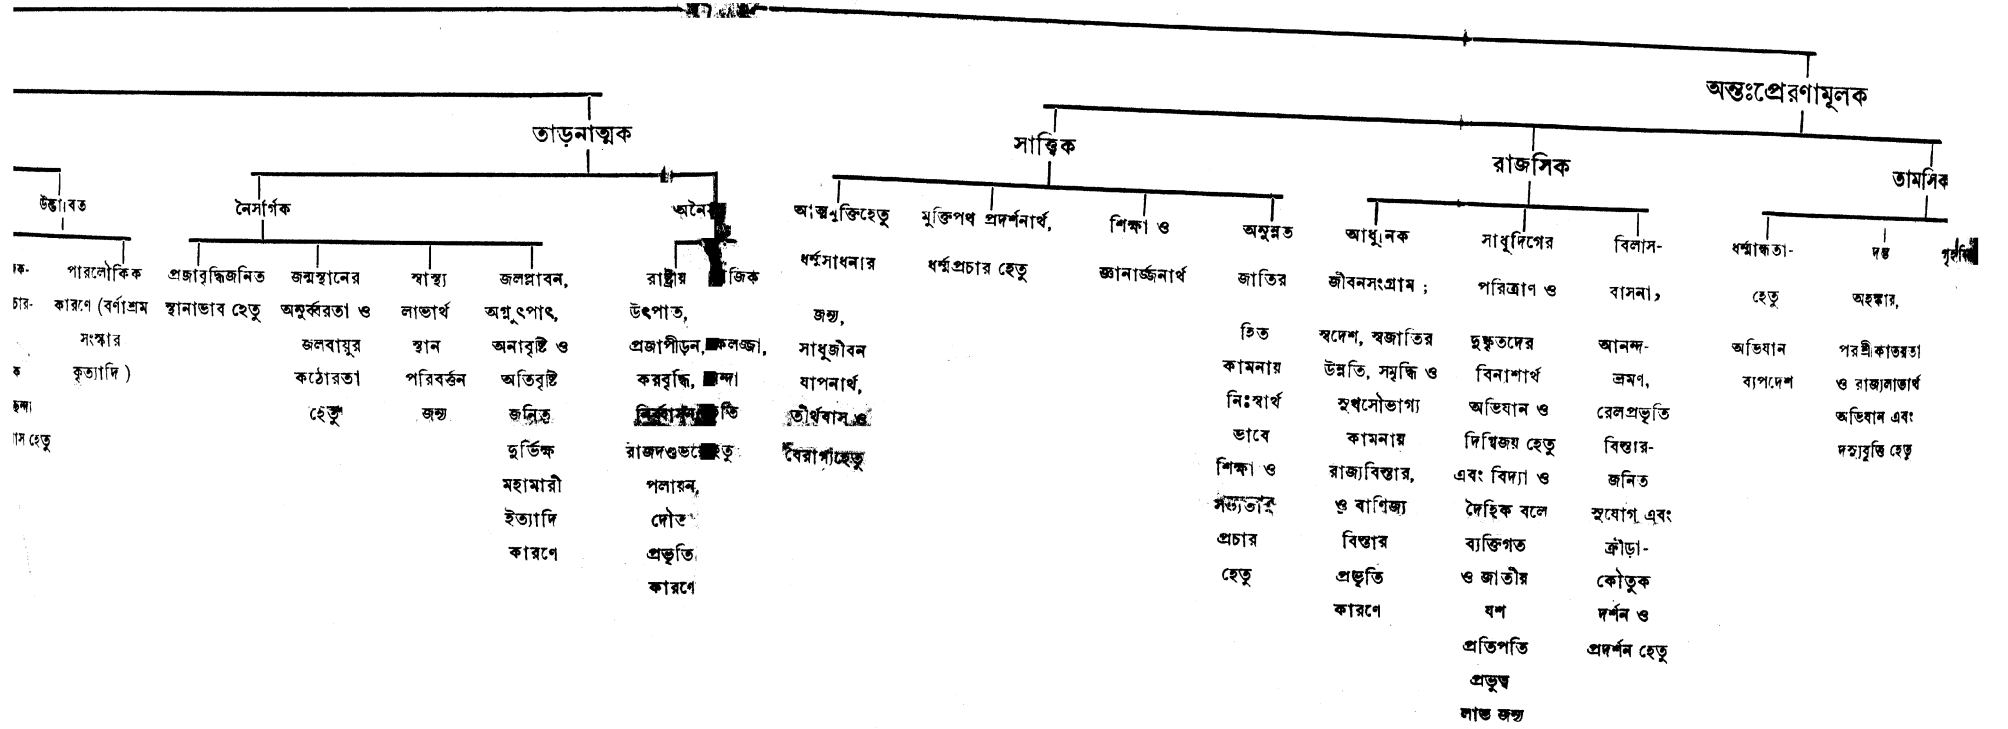 অন্তঃপ্রেরণামূলক
তাড়নাত্মক
সাত্ত্বিক
রাজসিক
তামসিক
নৈসর্গিক
পারলৌকিক
কারণে (বর্ণাশ্রম
সংস্কার
কৃত্যাদি )
প্রজাবৃদ্ধিজনিত
স্থানাভাব হেতু
জন্মস্থানের
অনুর্ব্বরতা ও
জলবায়ুর
কঠোরতা
হেতু
স্বাস্থ্য
লাভার্থ
স্থান
পরিবর্ত্তন
জন্য
জলপ্লাবন,
অগ্ন্যুৎপাৎ,
অনাবৃষ্টি ও
অতিবৃষ্টি
জনিত
দুর্ভিক্ষ
মহামারী
ইত্যাদি
কারণে
রাষ্ট্রীয়
উৎপাত,
প্রজাপীড়ন,
করবৃদ্ধি,
নির্ব্বাসন
পলায়ন,
দৌত্য
প্রভৃতি
কারণে
আত্মমুক্তিহেতু
ধর্ম্মসাধনার
জন্য,
সাধুজীবন
যাপনার্থ,
তীর্থবাস ও
বৈরাগ্যহেতু
মুক্তিপথ প্রদর্শনার্থ,
ধর্ম্মপ্রচার হেতু
শিক্ষা ও
জ্ঞানার্জ্জনার্থ
অনুন্নত
জাতির
হিত
কামনায়
নিঃস্বার্থ
ভাবে
শিক্ষা ও
সভ্যতার
প্রচার
হেতু
আধুনিক
জীবনসংগ্রাম ;
স্বদেশ, স্বজাতির
উন্নতি, সমৃদ্ধি ও
সুখসৌভাগ্য
কামনায়
রাজ্যবিস্তার,
ও বাণিজ্য
বিস্তার
প্রভৃতি
কারণে
সাধুদিগের
পরিত্রাণ ও
দুষ্কৃতদের
বিনাশার্থ
অভিযান ও
দিগ্বিজয় হেতু
এবং বিদ্যা ও
দৈহিক বলে
ব্যক্তিগত
ও জাতীয়
যশ
প্রতিপতি
প্রভুত্ব
লাভ জন্য
বিলাস-
বাসনা,
আনন্দ-
ভ্রমণ,
রেলপ্রভৃতি
বিস্তার-
জনিত
সুযোগ এবং
ক্রীড়া-
কৌতুক
দর্শন ও
প্রদর্শন হেতু
ধর্ম্মান্ধতা-
হেতু
অভিযান
ব্যপদেশ
দম্ভ
অহঙ্কার,
পরশ্রীকাতরতা
ও রাজ্যলাভার্থ
অভিযান এবং
দস্যুবৃত্তি হেতু